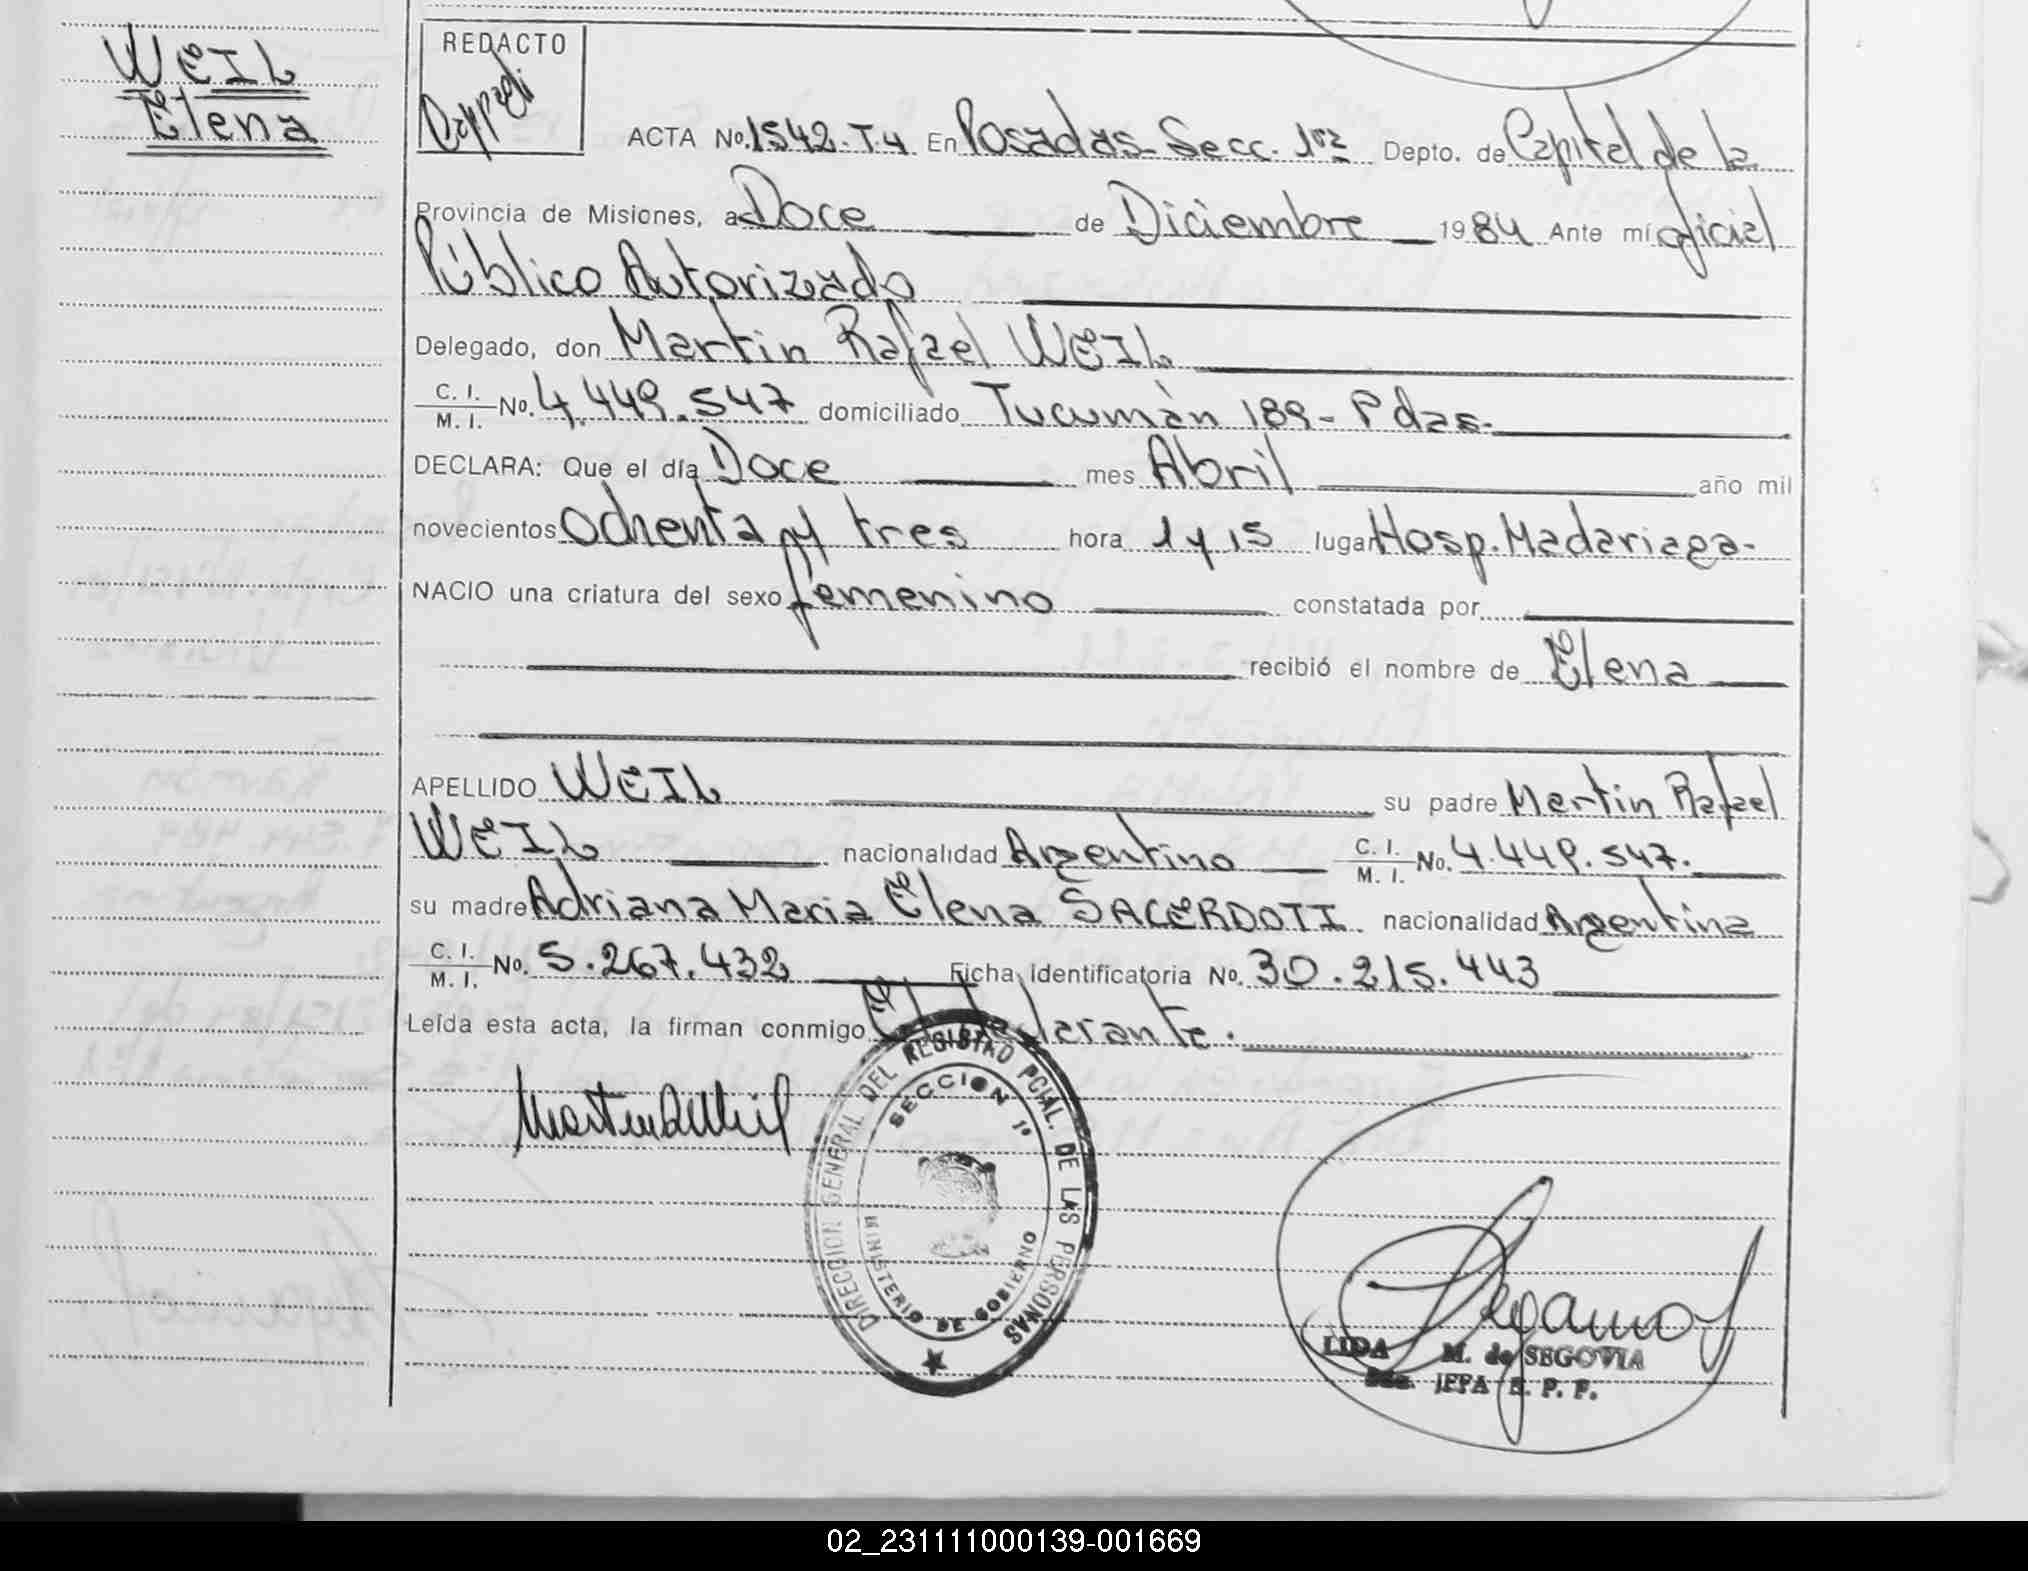 WEIL
Elena
REDACTO
ACTA No. 1542-T.4 En Posadas-Secc. 1ra Depto. de Capital de la
Provincia de Misiones, a Doce de Diciembre 1984 Ante mí oficial
Público Autorizado
Delegado, don Martin Rafael WEIL
C. I.
M. I. No. 4.449.547 domiciliado Tucumàn 189- Pdas.
DECLARA: Que el día Doce mes Abril año mil
novecientos ochenta y tres hora 1 y 15 lugar Hosp. Madariaga-
NACIO una criatura del sexo femenino constatada por
recibió el nombre de Elena
APELLIDO WEIL su padre Martin Rafael
WEIL nacionalidad Argentino C. I. M. I. No. 4.449.547.
su madre Adriana Maria Elena SACERDOTI nacionalidad Argentina
C. I.
M. I. No. 5.267.432 Ficha identificatoria No. 30.215.443
Leída esta acta, la firman conmigo El declarante.
DIRECCION GENERAL DEL REGISTRO PCIAL. DE LAS PERSONAS
SECCION 1ª
MINISTERIO DE GOBIERNO
LIDA M. de SEGOVIA
JEFA
02_231111000139-001669